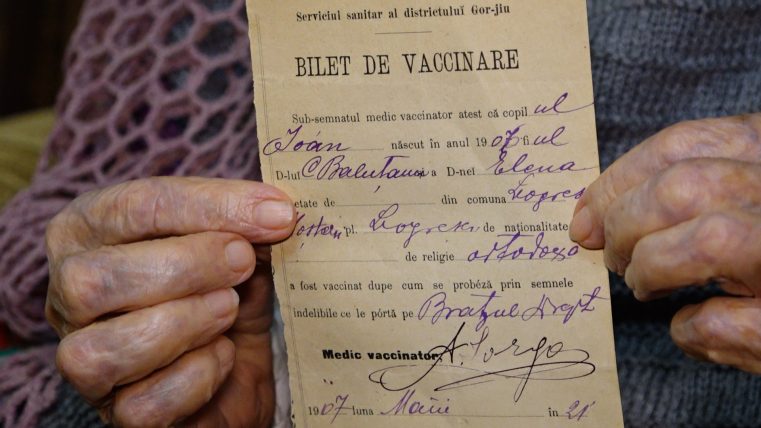 Serviciul sanitar al districtului Gor-jiu
BILET DE VACCINARE
Sub-semnatul medic vaccinator atest că copil ul
Ioán născut în anul 1907 fi ul
D-lut C Balutanu a D-nei Elena
etate de din comuna
pl. de naționalitate
de religie ortodoxa
a fost vaccinat dupe cum se probéză prin semnele
indelibile ce le pórtă pe Brațul drept
Medic vaccinator,
1907 luna Maiu în 21